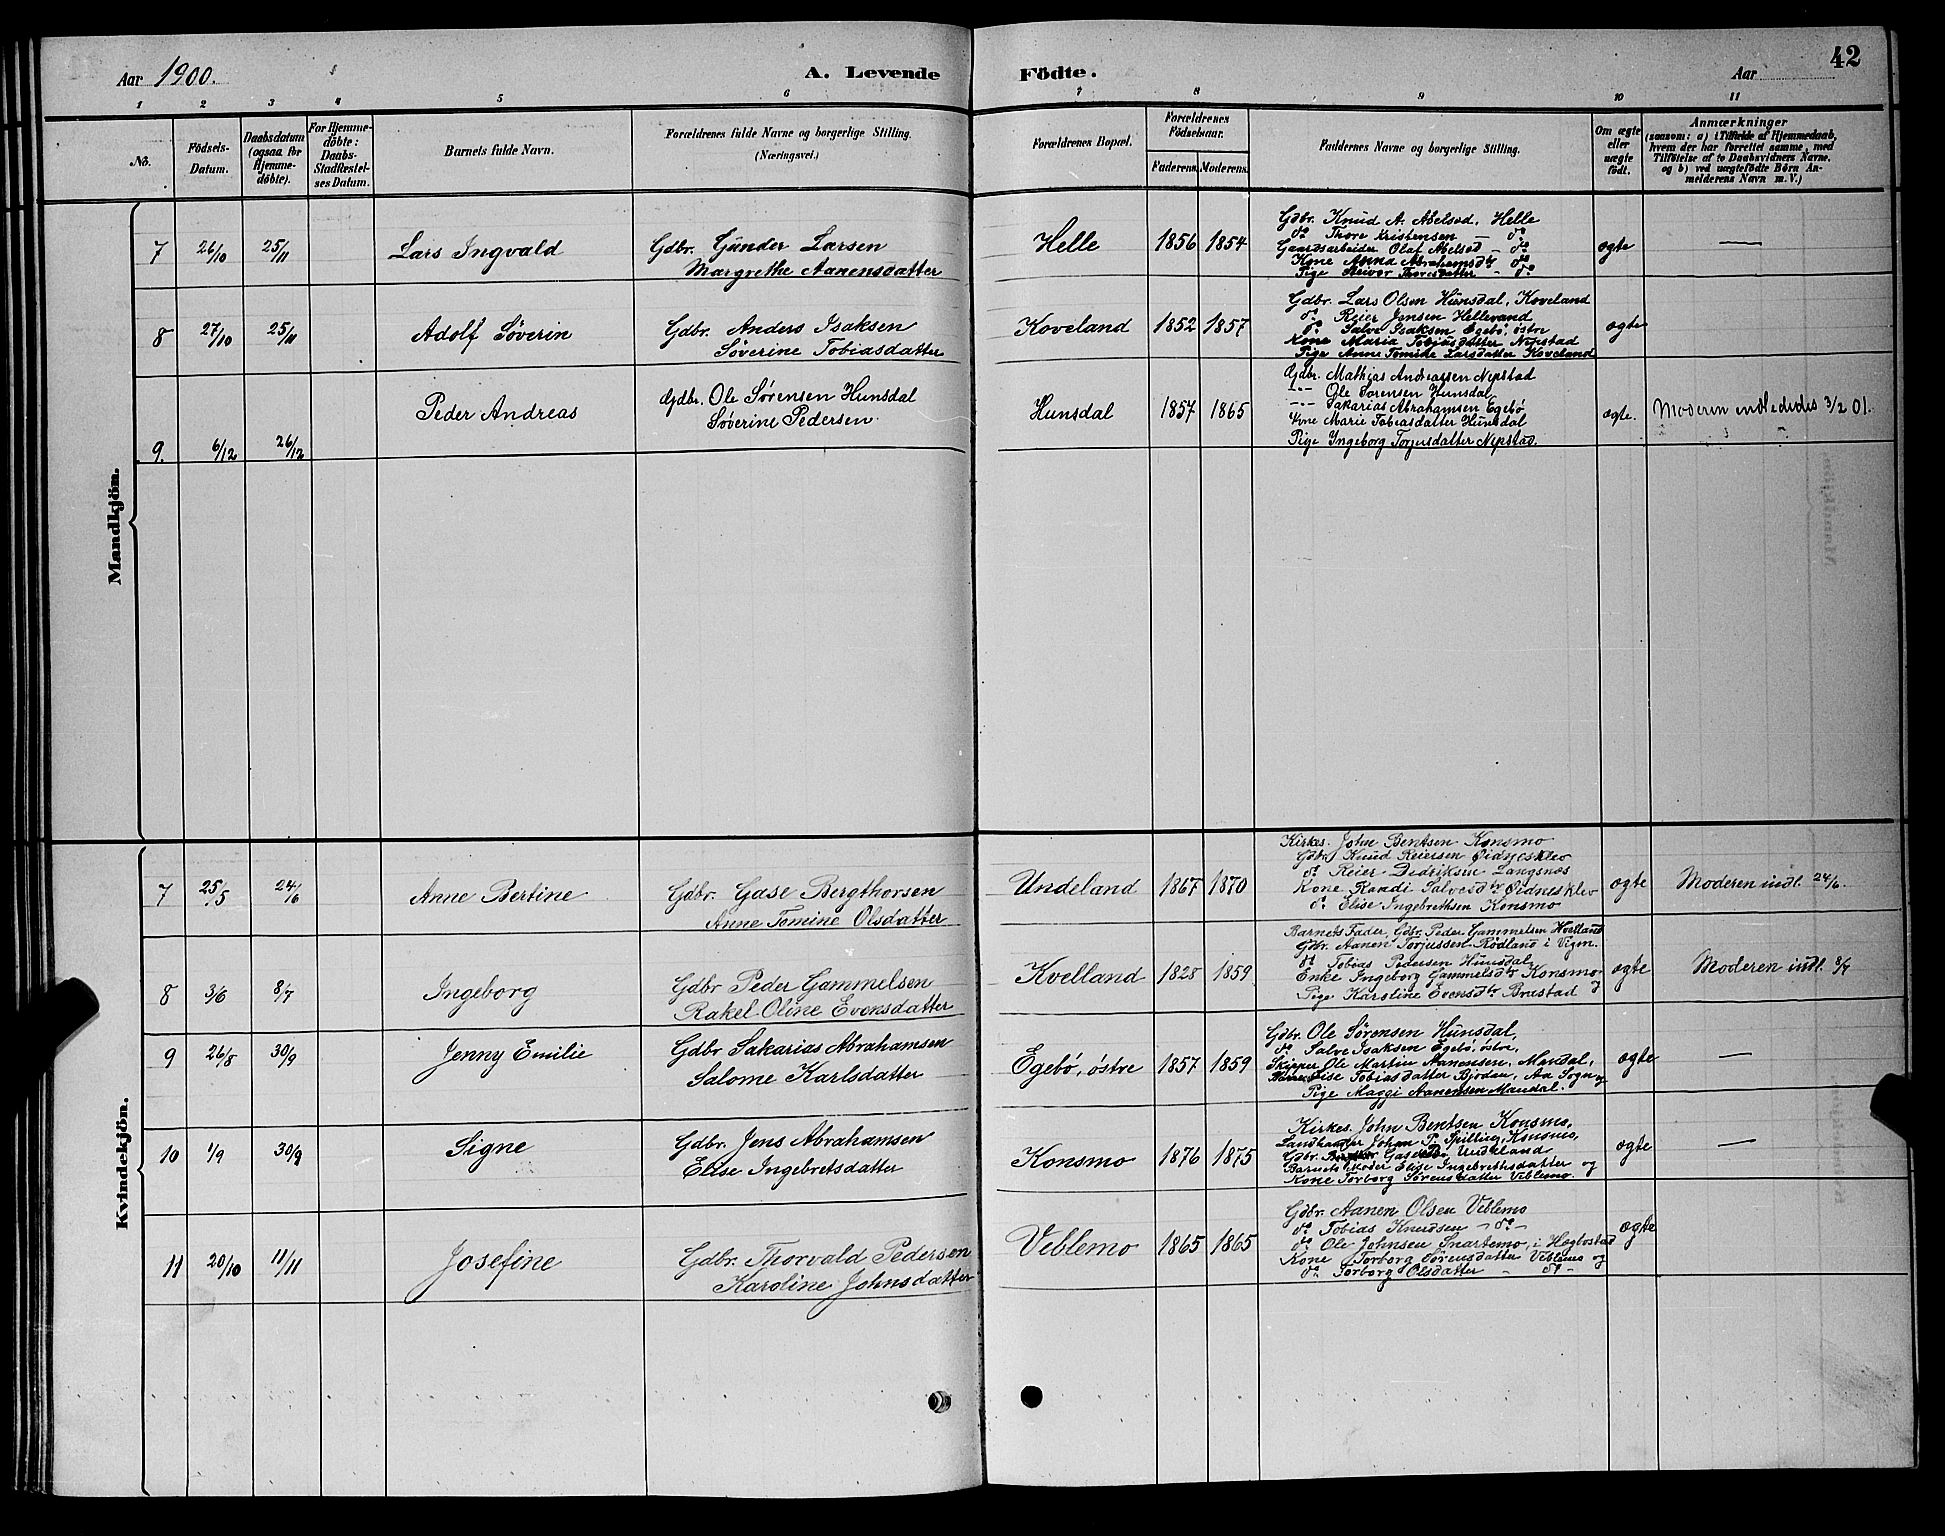 Aar 1900.
A. Levende
Födte.
Aar
42
1 2 3 4 5 6 7 8 9 10 11
No.
Födsels-
Datum.
Daabsdatum
(ogsaa for
Hjemme-
döbte).
For Hjemme-
döbte:
Daabs-
Stadfæstel-
ses Datum.
Barnets fulde Navn.
Forældrenes fulde Navne og borgerlige Stilling.
(Næringsvei.)
Forældrenes Bopæl.
Forældrenes
Födselsaar.
Faderens. Moderens.
Faddernes Navne og borgerlige Stilling.
Om ægte
eller
uægte
födt.
Anmærkninger
(saasom: a) i Tilfælde af Hjemmedaab,
hvem der har forrettet samme, med
Tilföielse af to Daabsvidners Navne,
og b) ved uægtefödte Börn An-
melderens Navn m. V.)
Mandkjön.
7 26/10 25/11 Lars Ingvald
Gdbr. Gunder Larsen
Margrethe Aanensdatter
Helle 1856 1854
Gdbr. Knud A. Abelsød, Helle
do Thore Kristensen – do
Gaardsarbeider Olaf Abelsød – do
Kone Anna Abrahamsdtr do
Pige Thoresdatter – do
ægte —
8 27/10 25/11 Adolf Söverin
Gdbr. Anders Isaksen
Söverine Tobiasdatter
Koveland 1852 1857
Gdbr. Lars Olsen Hunsdal, Koveland
do Reier Jensen Hellevand
do Salve Isaksen Egebö, östre
Kone Maria Tobiasdatter Nepstad
Pige Anne Tomine Larsdatter Koveland
ægte
9. 6/12 26/12 Peder Andreas
Gdbr. Ole Sørensen Hunsdal
Söverine Pedersen
Hunsdal 1857 1865
Gdbr. Mathias Andreassen Nepstad
-"- Ole Sorensen Hunsdal
-"- Sakarias Abrahamsen Egebö
Kone Marie Tobiasdatter Hunsdal
Pige Ingeborg Torjusdatter Nepstad.
ægte. Moderen indlededes 3/2 01.
Kvindekjön.
7 25/5 24/6 Anne Bertine
Gdbr. Gase Bergthorsen
Anne Tomine Olsdatter
Undeland 1867 1870
Kirkes. John Bentsen Konsmo
Gdbr. Knud Reiersen Eidnesklev
do Reier Didriksen Langenæs
Kone Randi Salvesdtr Eidnesklev
do Elise Ingebrethsen Konsmo
ægte Moderen indl. 24/6.
8 3/6 8/7 Ingeborg
Gdbr Peder Gammelsen
Rakel Oline Evensdatter
Kvelland 1828 1859
Barnets Fader, Gdbr. Peder Gammelsen Kvelland
Gdbr. Aanen Torjussen Rödland i Vigm.
do Tobias Pedersen Hunsdal
Enke Ingeborg Gammelsdtr Konsmo
Pige Karoline Evensdtr Brustad
ægte Moderen indl. 8/7
9 26/8 30/9 Jenny Emilie
Gdbr Sakarias Abrahamsen
Salome Karlsdatter
Egebö, østre 1857 1859
Gdbr. Ole Sørensen Hunsdal,
do Salve Isaksen Egebö, østre,
Skipper Ole Martin Aanensen, Mandal,
Tobiasdatter Bjødan, Aa Sogn og
Pige Maggi Aanensen Mandal.
ægte —
10 4/9 30/9 Signe
Gdbr. Jens Abrahamsen
Elise Ingebretsdatter
Konsmo 1876 1875
Kirkes. John Bentsen Konsmo,
Landhandler Johan P. Spilling, Konsmo,
Gdbr. Gase Undeland
Barnets Moder Elise Ingebrethsdatter og
Kone Torborg Sørensdatter Veblemo.
ægte —
11 20/10 11/11 Josefine
Gdbr. Thorvald Pedersen
Karoline Johnsdatter
Veblemo 1865 1865
Gdbr. Aanen Olsen Veblemo
do Tobias Knudsen – do –
do Ole Johnsen Snartemo, i Hægbostad
Kone Torborg Sørensdatter Veblemo og
do Torborg Olsdatter – do –
ægte